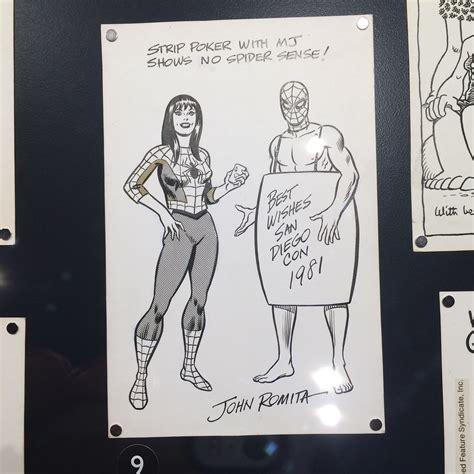 STRIP POKER WITH MJ
SHOWS NO SPIDER SENSE!
BEST
WISHES
SAN
DIEGO
CON
1981
JOHN ROMITA
9
With be
Feature Syndicate, Inc.